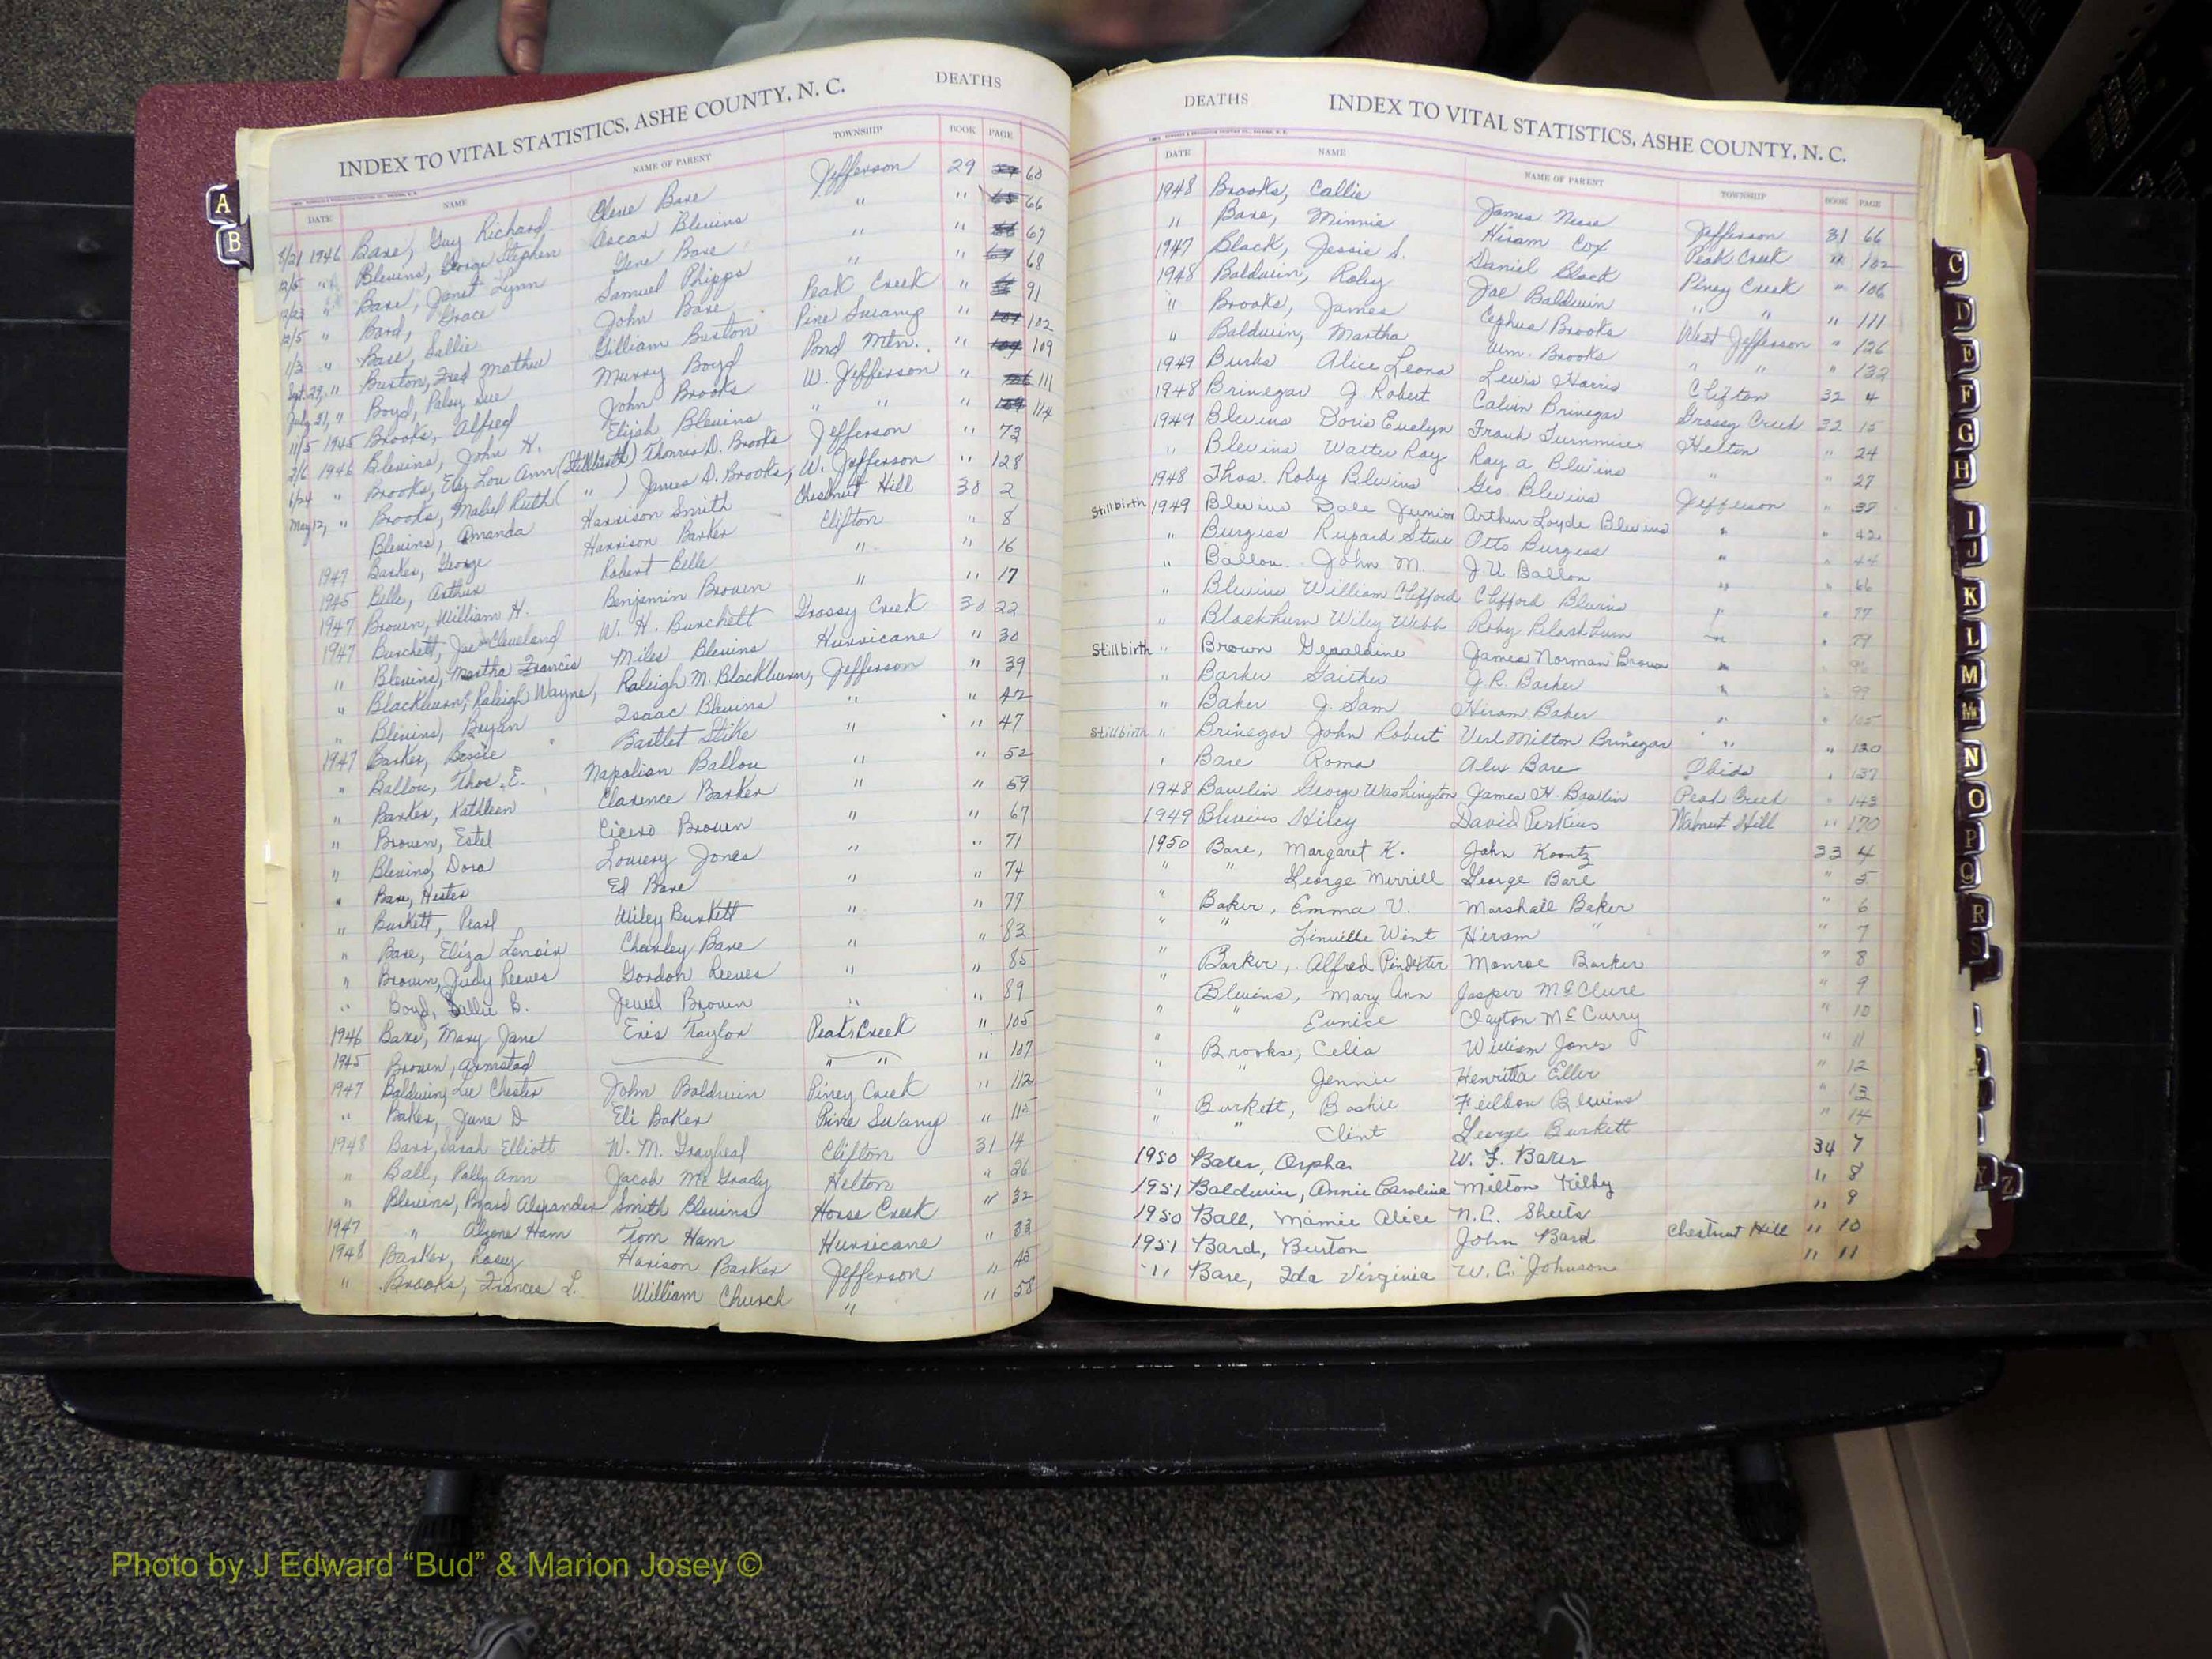 INDEX TO VITAL STATISTICS, ASHE COUNTY, N. C. DEATHS
DATE NAME NAME OF PARENT TOWNSHIP BOOK PAGE
1946 Bare, Guy Richard Clene Bare Jefferson 29 60
12/5 " Blevins, George Stephen Oscar Blevins " " 66
" Bare, Janet Lynn Gene Bare " " 67
12/5 " Bard, Grace Samuel Phipps " " 68
1/3 " Bare, Sallie John Bare Peak Creek " 91
Sept. 29, " Burton, Fred Mathew Gilliam Burton Pine Swamp " 102
July 21, " Boyd, Patsy Sue Murry Boyd Pond Mtn. " 109
11/5 1945 Brooks, Alfred John Brooks W. Jefferson " 111
2/6 1946 Blevins, John H. Elijah Blevins " " " 114
6/24 " Brooks, Lou Ann (Stillbirth) Thomas D. Brooks Jefferson " 73
May 12, " Brooks, Mabel Ruth ( " ) James D. Brooks, W. Jefferson " 128
Blevins, Amanda Harrison Smith Chestnut Hill 30 2
1947 Barker, George Harrison Barker Clifton " 8
1945 Belle, Arthur Robert Belle " " 16
1947 Brown, William H. Benjamin Brown " " 17
1947 Burchett, Joe Cleveland W. H. Burchett Grassy Creek 30 22
" Blevins, Martha Francis Miles Blevins Hurricane " 30
" Blackburn, Raleigh Wayne, Raleigh M. Blackburn, Jefferson " 39
" Blevins, Bryan Isaac Blevins " " 42
1947 Barker, Bessie Bartlet Stike " " 47
" Ballou, Thos. E. Napolian Ballou " " 52
" Barker, Kathleen Clarence Barker " " 59
" Brown, Estel Cicero Brown " " 67
" Blevins, Dora Lowery Jones " " 71
" Bare, Hester Ed Bare " " 74
" Burkett, Pearl Wiley Burkett " " 77
" Bare, Eliza Lenoir Charley Bare " " 83
" Brown, Judy Reeves Gordon Reeves " " 85
" Boyd, Sallie B. Jewel Brown " " 89
1946 Bare, Mary Jane Eris Taylor Peak Creek " 105
1945 Brown, Armstad " " " 107
1947 Baldwin, Lee Chester John Baldwin Piney Creek " 112
" Baker, June D Eli Baker Pine Swamp " 115
1948 Barr, Sarah Elliott W. M. Graybeal Clifton 31 14
" Ball, Polly Ann Jacob McGrady Helton " 26
" Blevins, Byard Alexander Smith Blevins Horse Creek " 32
1947 " Alzene Ham Tom Ham Hurricane " 33
1948 Barker, Rosey Harison Barker Jefferson " 45
" Brooks, Frances L. William Church " " 58
DEATHS INDEX TO VITAL STATISTICS, ASHE COUNTY, N. C.
DATE NAME NAME OF PARENT TOWNSHIP BOOK PAGE
1948 Brooks, Callie James Neese Jefferson 31 66
" Bare, Minnie Hiram Cox Peak Creek " 102
1947 Black, Jessie S. Daniel Black Piney Creek " 106
1948 Baldwin, Roby Joe Baldwin " " " 111
" Brooks, James Cephus Brooks West Jefferson " 126
" Baldwin, Martha Wm. Brooks " " " 132
1949 Burks Alice Leona Lewis Harris Clifton 32 4
1948 Brinegar J. Robert Calvin Brinegar Grassy Creek 32 15
1949 Blevins Doris Evelyn Frank Turnmire Helton " 24
" Blevins Walter Ray Ray A Blevins " " 27
1948 Thos. Roby Blevins Geo. Blevins Jefferson " 38
Stillbirth 1949 Blevins Dale Junior Arthur Loyde Blevins " " 42
" Burgess Rupard Steve Otto Burgess " " 44
" Ballou John M. J U Ballou " " 66
" Blevins William Clifford Clifford Blevins " " 77
" Blackburn Wiley Webb Roby Blackburn " " 79
Stillbirth " Brown Geraldine James Norman Brown " " 96
" Barker Gaither J. R. Barker " " 99
" Baker J. Sam Hiram Baker " " 105
Stillbirth " Brinegar John Robert Verl Milton Brinegar " " 130
" Bare Roma Alex Bare Obids " 137
1948 Bowlin George Washington James H. Bowlin Peak Creek " 143
1949 Blevins Hiley David Perkins Walnut Hill " 170
1950 Bare, Margaret K. John Koontz 33 4
" " George Merrill George Bare " 5
" Baker, Emma V. Marshall Baker " 6
" " Linville Went Hiram " " 7
" Barker, Alfred Pindexter Monroe Barker " 8
" Blevins, Mary Ann Jasper McClure " 9
" " Eunice Clayton McCurry " 10
" Brooks, Celia William Jones " 11
" " Jennie Henritta Eller " 12
" Burkett, Bashie Feilbou Blevins " 13
" " Clint George Burkett " 14
1950 Bater, Orpha W. F. Bater 34 7
1951 Baldwin, Annie Caroline Milton Kilby " 8
1950 Ball, Mamie Alice N.C. Sheets " 9
1951 Bard, Burton John Bard Chestnut Hill " 10
" Bare, Ida Virginia W. C. Johnson " 11
A
B
C
D
E
F
G
H
I
J
K
L
M
Mc
N
O
P
Q
R
S
Y
Z
Photo by J Edward “Bud” & Marion Josey ©